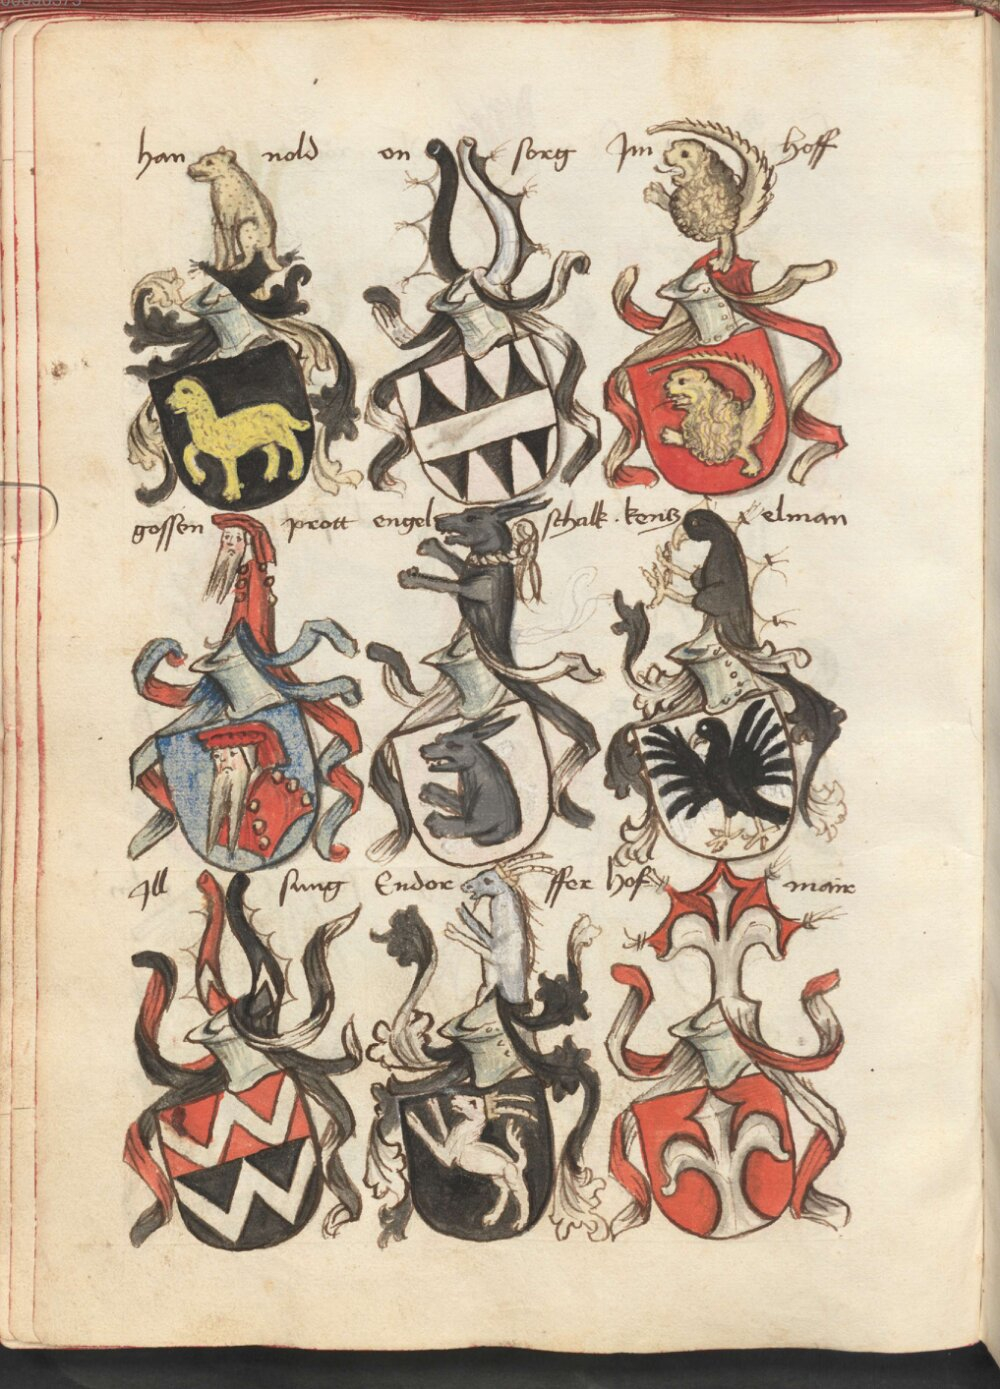 han nold on sorg Im Hoff
gossen prott engel schalk . kentz elman
Ill sung Endor ffer hof mair